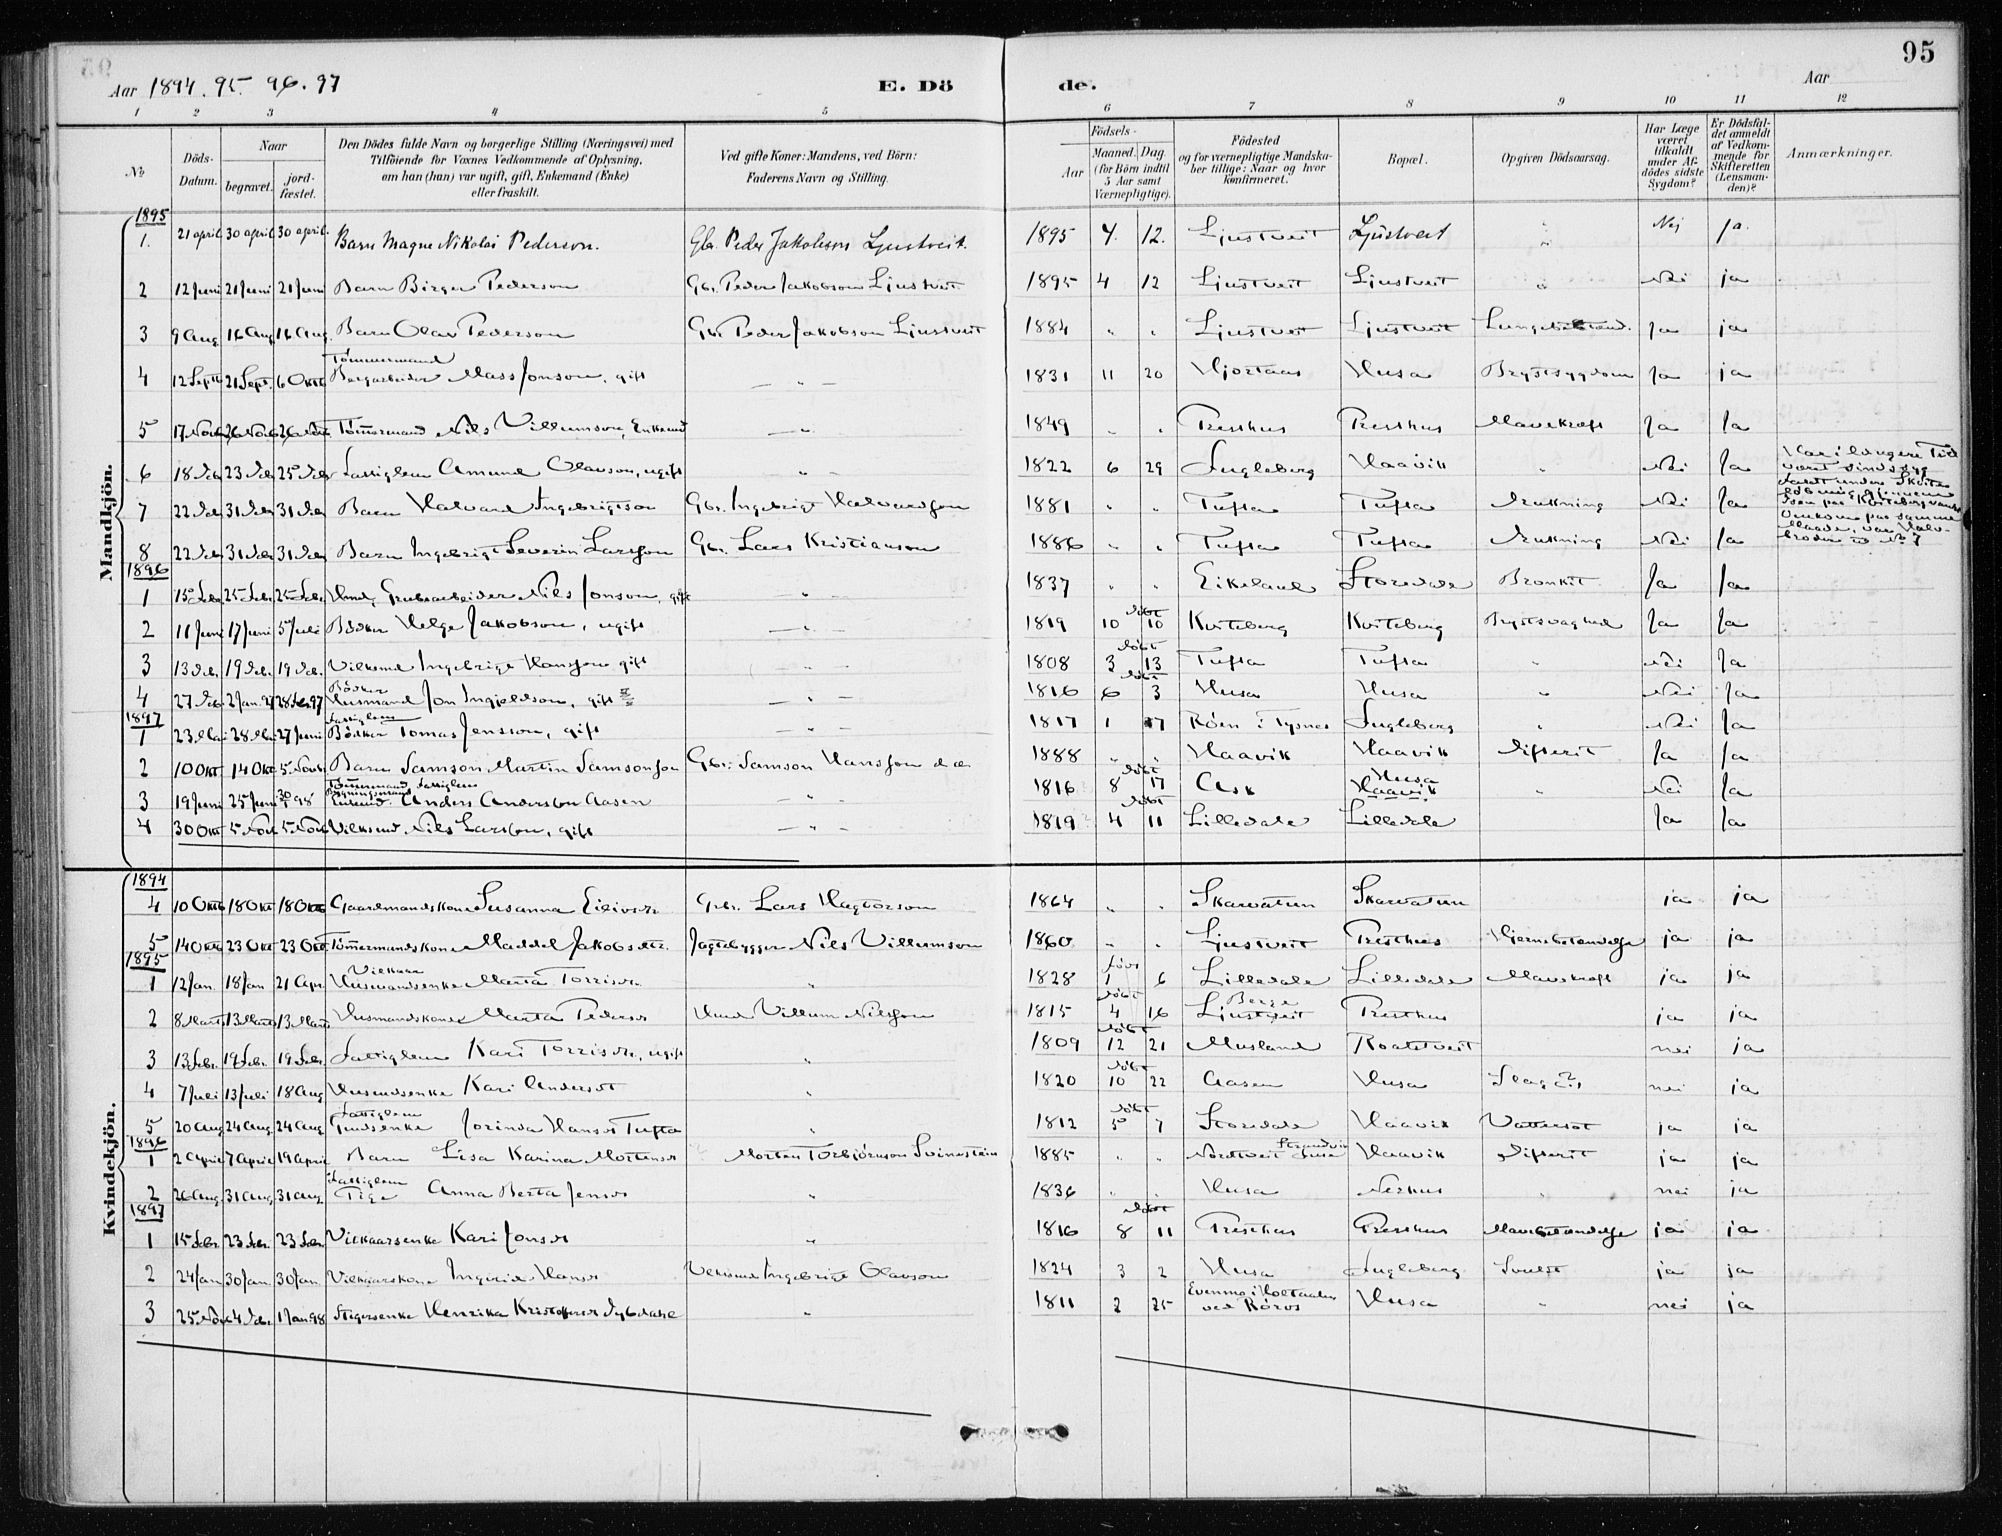 95
Aar 1894. 95. 96. 97
E. Dö
de.
Aar
1 2 3 4 5 6 7 8 9 10 11 12
№
Döds-Datum.
Naar
begravet.
jord-fæstet.
Den Dödes fulde Navn og borgerlige Stilling (Næringsvei) med
Tilföiende for Voxnes Vedkommende af Oplysning,
om han (hun) var ugift, gift, Enkemand (Enke)
eller fraskilt.
Ved gifte Koner: Mandens, ved Börn:
Faderens Navn og Stilling.
Födsels-
Aar
Maaned. Dag.
(for Börn indtil
5 Aar samt
Værnepligtige).
Födested
og for værnepligtige Mandska-
ber tillige: Naar og hvor
konfirmeret.
Bopæl.
Opgiven Dödsaarsag.
Har Læge
været
tilkaldt
under Af-
dödes sidste
Sygdom?
Er Dödsfal-
det anmeldt
af Vedkom-
mende for
Skifteretten
(Lensman-
den)?
Anmærkninger.
Mandkjön.
1895
1. 21 april 30 april 30 april Barn Magne Nikolai Pederson. Gbr. Peder Jakobson Ljustveit. 1895 4. 12. Ljustveit Ljustveit " Nej Ja.
2 12 Juni 21 Juni 21 Juni Barn Birger Pederson Gbr. Peder Jakobson Ljustveit 1895 4 12 Ljustveit Ljustveit " Nei ja
3 9 Aug 16 Aug 16 Aug. Barn Olav Pederson Gbr. Peder Jakobson Ljustveit 1884 " " Ljustveit Ljustveit Ja ja
Tømmermand
4 12 Sept 21 Sept. 6 Okt Bergarbeider Mass Jonson, gift — " — 1831 11 20 Hjortaas Husa Brystsygdom Ja ja
5 17 Novb 26 Novb 26 Nov Tømmermand Nils Villumson, Enkemd — " 1849 " " Presthus Presthus Mavekræft Ja Ja
6 18 Deb 23 Deb 25 Deb Fattiglem Amund Olavson, ugift " 1822 6 29 Fugleberg Haavik " Nei Ja Har i længere Tid
været sindssyg
7 22 Deb 31 Deb 31 Deb Barn Halvard Ingebrigtson Gbr. Ingebrigt Halvardson 1881 " " Tufta Tufta Drukning Nei Ja Faldt under Skøite-
løbning gjennem
Isen paa Kvitebergvandet
8 22 Deb 31 Deb 31 Deb Barn Ingebrigt Severin Larsson Gbr. Lars Kristianson 1886 " " Tufta Tufta Drukning Nei Ja Omkom paa samme
Maade, var Halv-
broder til No 7
1896
1 15 Febr 25 Febr 25 Febr. Husmd, Grubearbeider Nils Jonson, gift " 1837 " " Eikeland Storedale Bronkit Ja Ja
2 11 Juni 17 Juni 5 Juli Bødker Helge Jakobson, ugift — " — 1819 10 døbt 10 Kviteberg Kviteberg Brystsvaghed Ja Ja
3 13 Deb. 19 Deb. 19 Deb. Vilkmd Ingebrigt Hansson gift " 1808 3 døbt 13 Tufta Tufta " Nei Ja
Bødker
4 27 Deb 2 Jan. 97 28 Feb 97 Husmand Jon Ingjeldson, gift — " — 1816 6 døbt 3 Husa Husa " Nei Ja
1897
Fattiglem
1 23 Mai 28 Mai 27 Juni Bødker Tomas Jensson, gift — " — 1817 1 17 Røen i Tysnes Fugleberg " Nei Ja
2 10 Okt 14 Okt 5 Novb Barn Samson Martin Samsonson Gbr. Samson Hansson 1888 " " Haavik Haavik Difterit Ja Ja
Tømmermand Fattiglem
3 19 Juni 25 Juni 30/1 98 Anders Anderson Aasen " 1816 8 døbt 17 Ask Husa Haavik " Nei Ja
4 30 Okt 5 Nov 5 Nov Vilksmd Nils Larsson, gift — " — 1819 4 døbt 11 Lilledale Lilledale Ja Ja
Kvindekjön.
1894
4 10 Okt 18 Okt 18 Okt Gaardmandskone Susanna Eilivsdr Gbr. Lars Hagtorson 1864 " " Skarvatun Skarvatun ja ja
5 14 Okt 23 Okt 23 Okt Tømmermandskone Maddel Jakobsdtr. Jagtebygger Nils Villumson 1860 " " Ljustveit Presthus Hjernebetændelse ja ja
1895
Vilkaar
1 12 Jan 18 Jan 21 Apr. Husmandsenke Marta Torrisdr. " 1828 født 1 6 Lilledale Lilledale Mavekræft ja ja
2 8 Marts 13 Marts 13 Marts Husmandskone Marta Pedersd Husmd Villum Nilsson 1815 døbt 4 16 Berge Ljustveit Presthus ja ja
3 13 Febr. 19 Febr. 19 Febr. Fattiglem Kari Torrisdr, ugift " 1809 døbt 12 21 Musland Roaldtveit nei ja
4 7 Juli 13 Juli 18 Aug Husmdsenke Kari Andersdt " 1820 døbt 10 22 Aasen Husa Slag (?) nei ja
Fattiglem
5 20 Aug 24 Aug. 24 Aug. Gmdsenke Jorinda Hansdr Tufta " 1812 døbt 5 7 Storedale Haavik Vattersot ja ja
1896
1 2 April 7 April 19 April Barn Lisa Karina Mortensdr Morten Torbjørnson Svinestein 1885 " " Nordtveit Strandvik Fuse Haavik Difterit ja ja
Fattiglem
2 26 Aug. 31 Aug. 31 Aug Pige Anna Berta Jensdr " 1836 " " Husa Nerhus " nei ja
1897
1 15 Febr. 23 Febr. 23 Febr Vilkaarsenke Kari Jonsdr " 1816 døbt 8 11 Presthus Presthus Mavebetændelse ja ja
2 24 Jan 30 Jan. 30 Jan. Vilkaarskone Ingerid Hansdr Vilksmd Ingebrigt Olavson 1824 3 2 Husa Fugleberg Svulst ja ja
3 25 Nov 4 Deb. 1 Jan 98 Stigersenke Henrika Kristofersdr Dybdahl " 1811 2 25 Evenmo i Holtaalen
ved Røros Husa " nei ja